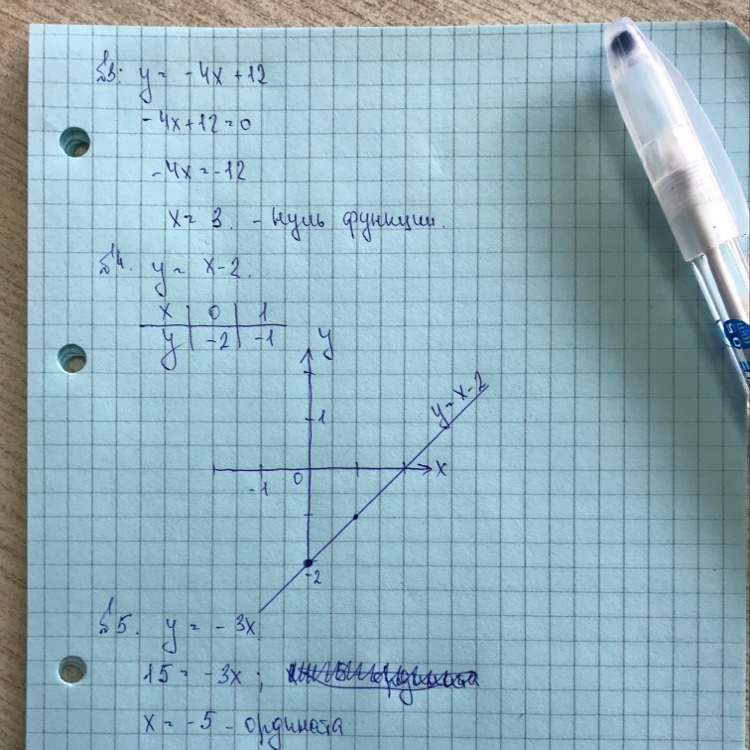 №3. y = -4x + 12
-4x + 12 = 0
-4x = -12
x = 3. - нуль функции.
№4. y = x - 2.
x | 0 | 1
y | -2 | -1
y
y = x - 2
1
0
-1
x
-2
№5. y = -3x
15 = -3x;
x = -5 - ордината